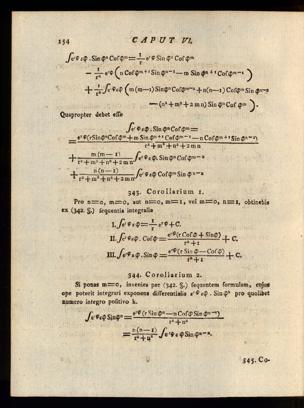 154 CAPUT VI.
∫e^rφ ∂φ . Sin φ^n Cos φ^m = 1/r e^rφ Sin φ^n Cos φ^m
− 1/r² e^rφ (n Cos φ^m+1 Sin φ^n−1 — m Sin φ^n+1 Cos φ^m−1)
+ 1/r² ∫e^rφ ∂φ (m(m—1) Sin φ^n Cos φ^m−2 + n(n—1) Cos φ^m Sin φ^n−2
— (n² + m² + 2 m n) Sin φ^n Cos φ^m).
Quapropter debet esse
∫e^rφ ∂φ . Sin φ^n Cos φ^m =
= e^rφ (r Sin φ^n Cos φ^m + m Sin φ^n+1 Cos φ^m−1 — n Cos φ^m+1 Sin φ^n−1) / r² + m² + n² + 2 m n
+ m(m—1) / r² + m² + n² + 2 m n ∫e^rφ ∂φ . Sin φ^n Cos φ^m−2
+ n(n—1) / r² + m² + n² + 2 m n ∫e^rφ ∂φ Cos φ^m Sin φ^n−2
343. Corollarium 1.
Pro n=0, m=0, aut n=0, m=1, vel m=0, n=1, obtinebis
ex (342. §.) sequentia integralia
I. ∫e^rφ ∂φ = 1/r e^rφ + C.
II. ∫e^rφ ∂φ . Cos φ = e^rφ (r Cos φ + Sin φ) / r² + 1 + C.
III. ∫e^rφ ∂φ . Sin φ = e^rφ (r Sin φ — Cos φ) / r² + 1 + C.
344. Corollarium 2.
Si ponas m=0, invenies per (342. §.) sequentem formulam, cujus
ope poterit integrari exponens differentialis e^rφ ∂φ . Sin φ^n pro quolibet
numero integro positivo n.
∫e^rφ ∂φ Sin φ^n = e^rφ (r Sin φ^n — n Cos φ Sin φ^n−1) / r² + n²
= n(n—1) / r² + n² ∫e^rφ ∂φ Sin φ^n−2.
345. Co-